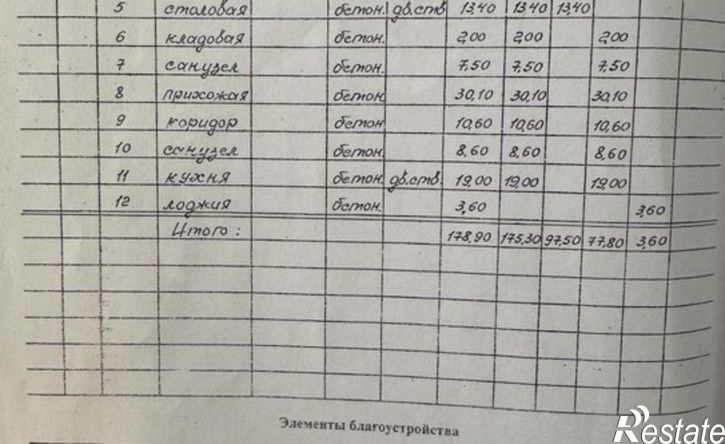 5 столовая бетон. дв.ств 13,40 13,40 13,40
6 кладовая бетон. 2,00 2,00 2,00
7 санузел бетон. 7,50 7,50 7,50
8 прихожая бетон 30,10 30,10 30,10
9 коридор бетон 10,60 10,60 10,60
10 санузел бетон. 8,60 8,60 8,60
11 кухня бетон. дв.ств. 19,00 19,00 19,00
12 лоджия бетон. 3,60 3,60
Итого: 178,90 175,30 97,50 77,80 3,60
Элементы благоустройства
Restate